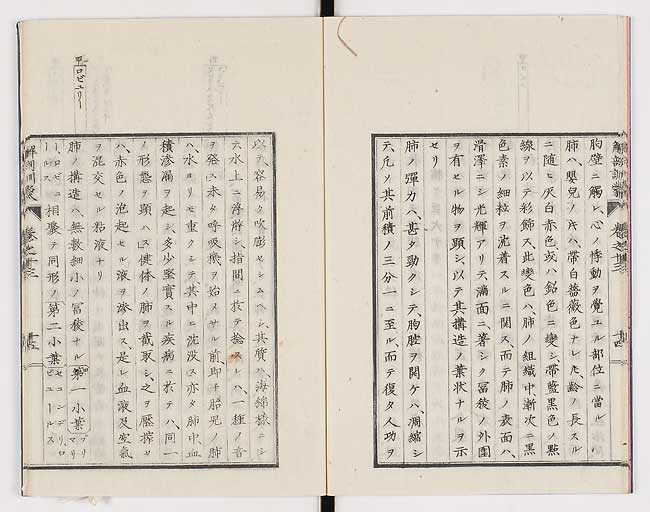 胸壁ニ觸レ、心ノ悸動ヲ覺ユル部位ニ當ル
肺ハ、嬰兒ノ片ハ、帶白薔薇色ナレ𪜈、齡ノ長スル
ニ隨ヒ、灰白赤色、或ハ鉛色ニ變シ、帶藍黑色ノ點
線ヲ以テ彩飾ス、此變色ハ、肺ノ組織中、漸次ニ黑
色素ノ細粒ヲ沈着スルニ関ス、而テ肺ノ表面ハ、
滑澤ニシ光輝アリテ、滿面ニ著シク冨稜ノ外圍
ヲ有セル物ヲ顯シ、以テ其搆造ノ葉狀ナルヲ示
セリ
肺ノ彈力ハ、甚タ勁クシテ、胸腔ヲ開ケハ、凋縮シ
テ、凡ソ其前積ノ三分一ニ至ル、而テ復タ人功ヲ
以テ、容易ク吹膨セシムヘシ、其質ハ、海綿様ニシ
テ、水上ニ浮游シ、指間ニ於テ捻スレハ、一種ノ音
ヲ發ス、未タ呼吸機ヲ始メサル前、即チ胎兒ノ肺
ハ、水ヨリモ重クシテ、其中ニ沈没ス、亦タ肺中、血
積滲漏ヲ起シ、多少堅實スル疾病ニ於テハ、同一
ノ形態ヲ顯ハス、健体ノ肺ヲ截取シ、之ヲ壓搾セ
ハ、赤色ノ泡起セル液ヲ滲出ス、是レ血液及空氣
ヲ混交セル粘液ナリ
肺ノ搆造ハ、無數細小ノ冨稜ナル、第一小葉プリマリ
ー、ロビュールス相聚テ、同形ノ第二小葉セコンデリロビュールス
甲ロビュリー
解剖訓蒙
卷之十三